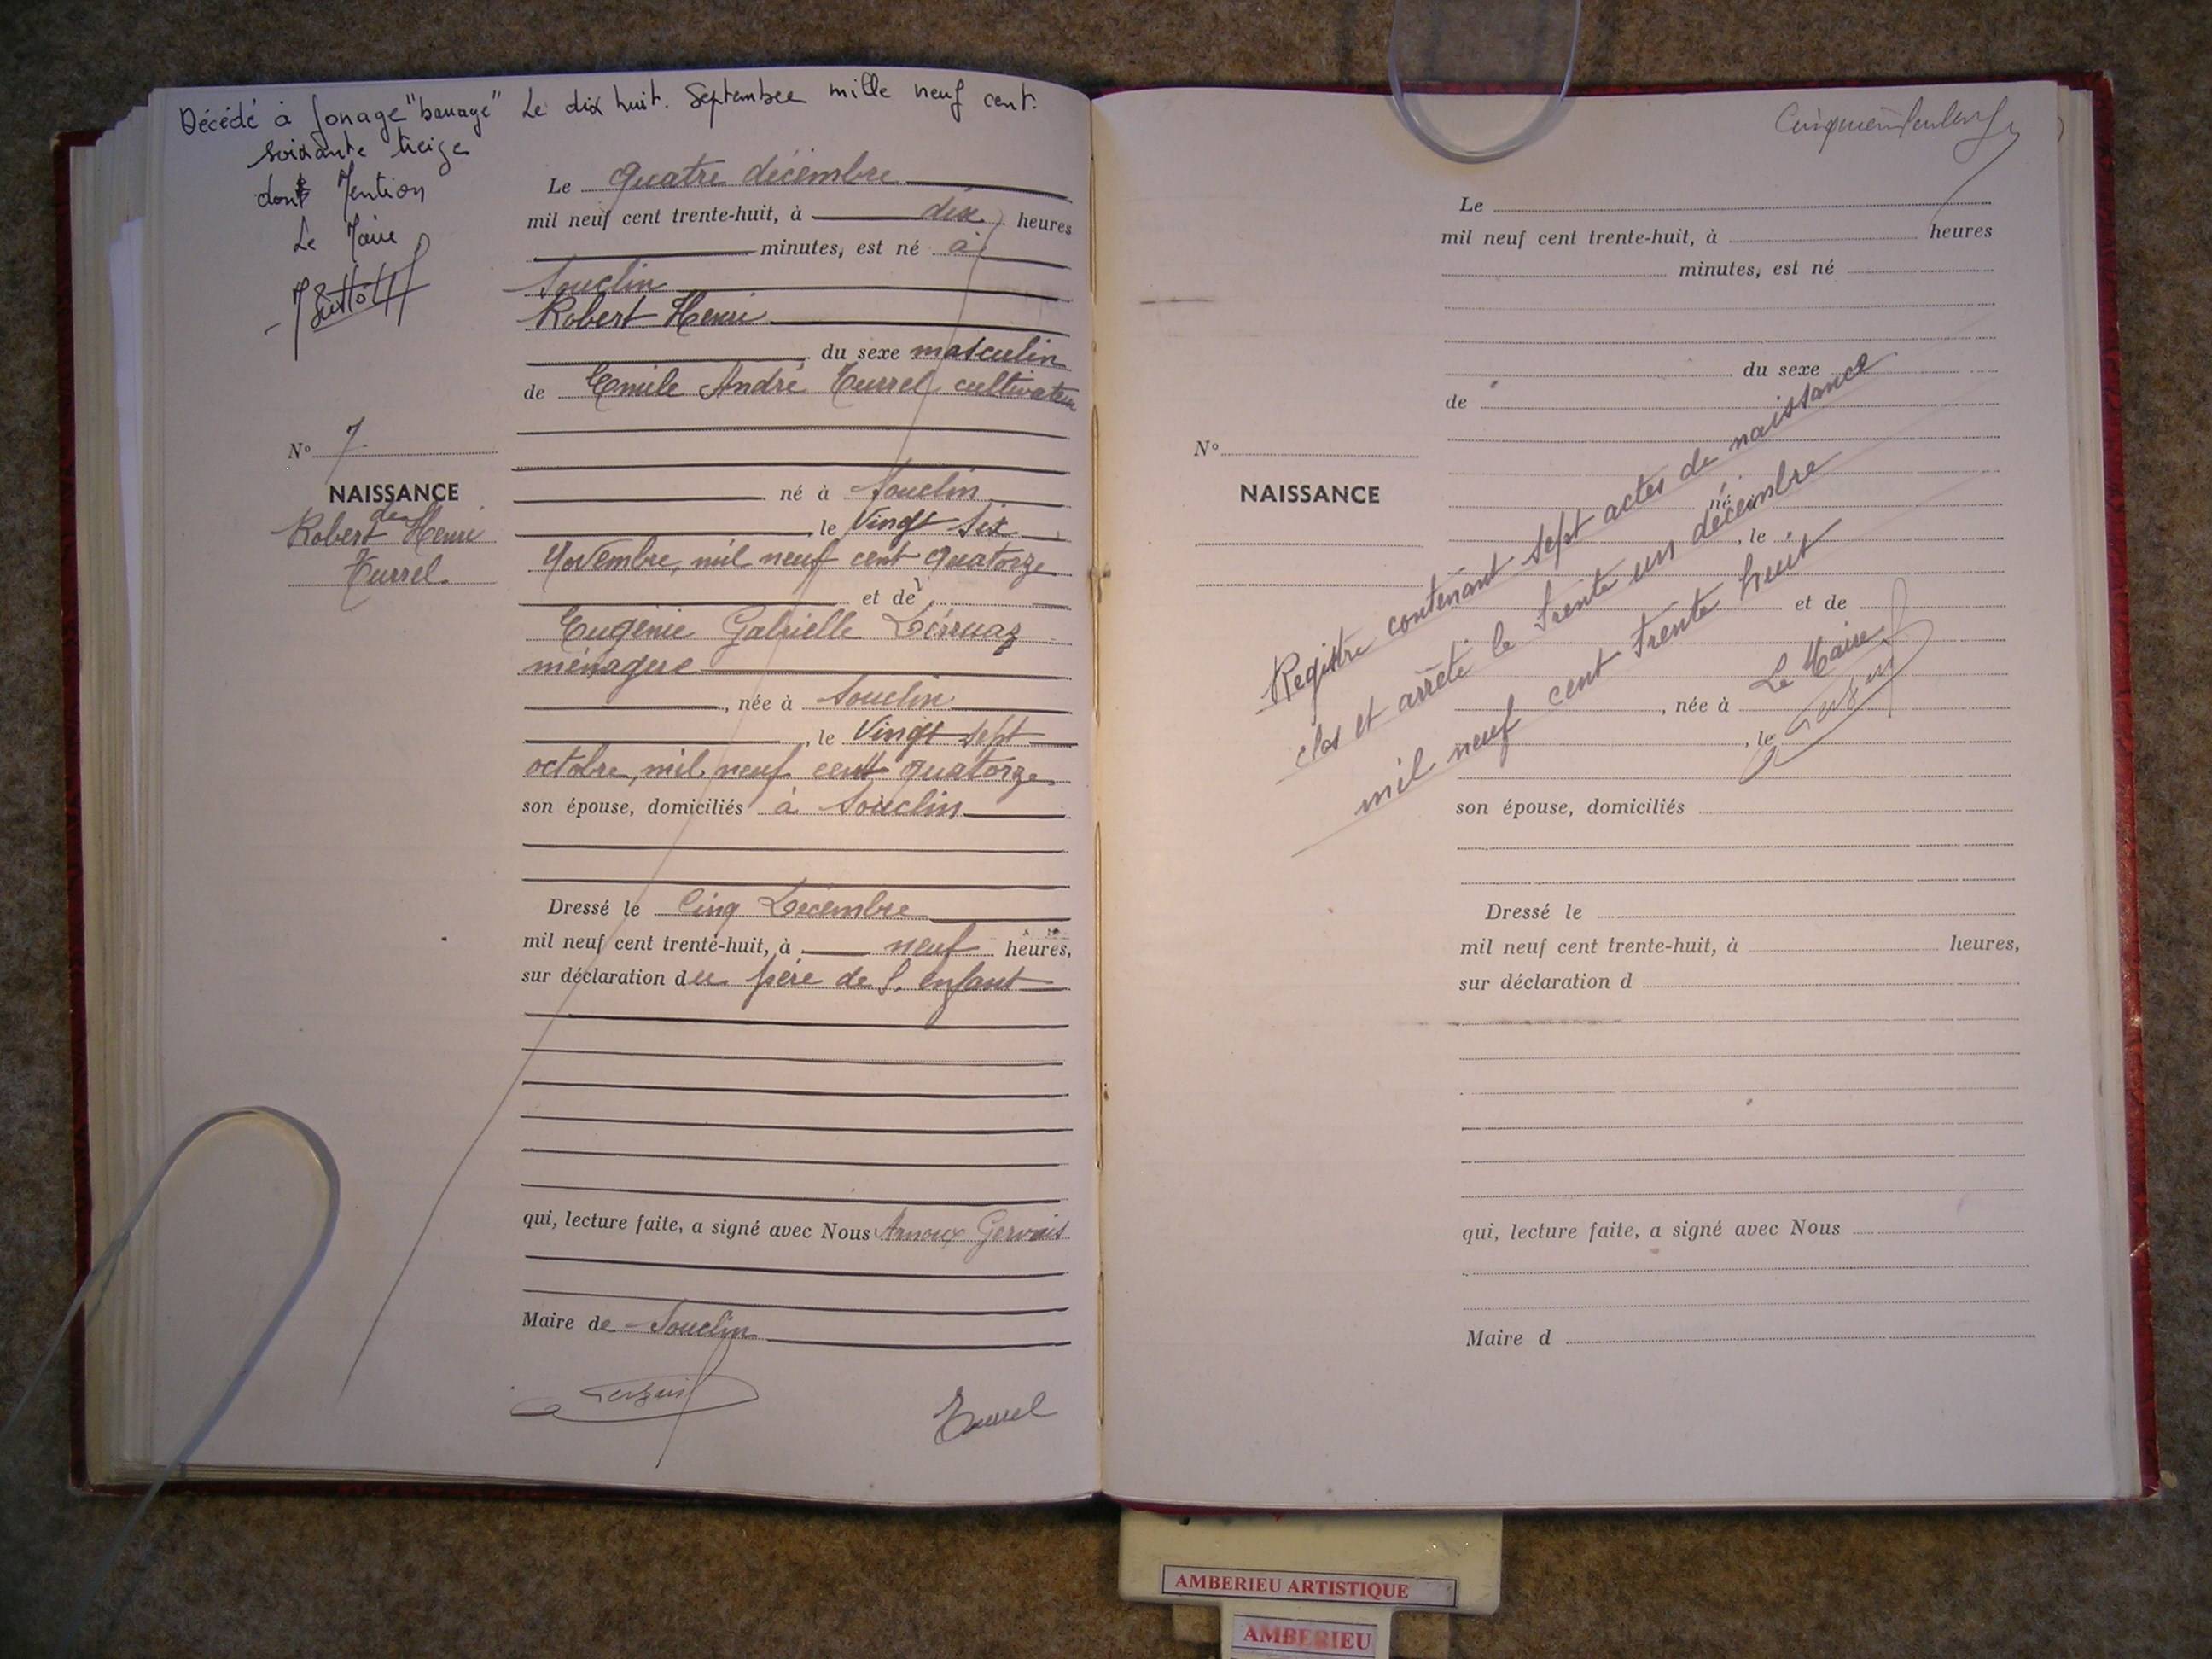 Décédé à Le dix huit. Septembre mille neuf cent.
soixante treize
dont Mention
Le Maire
Le quatre décembre
mil neuf cent trente-huit, à dix heures
minutes, est né à
Souclin
Robert Henri
du sexe masculin
de Emile André Turrel, cultivateur
né à Souclin
, le Vingt six
Novembre, mil neuf cent quatorze
et de
Eugénie Gabrielle
ménagère
, née à Souclin
, le Vingt sept
octobre, mil neuf cent quatorze
son épouse, domiciliés à Souclin
Dressé le Cinq Décembre
mil neuf cent trente-huit, à neuf heures,
sur déclaration du père de l'enfant
qui, lecture faite, a signé avec Nous Arnoux Gervais
Maire de Souclin
Gervais
Turrel
N° 7.
NAISSANCE
de
Robert Henri
Turrel.
Le
mil neuf cent trente-huit, à heures
minutes, est né
du sexe
de
né à
, le
et de
, née à
, le
son épouse, domiciliés
Dressé le
mil neuf cent trente-huit, à heures,
sur déclaration d
qui, lecture faite, a signé avec Nous
Maire d
N°
NAISSANCE
Registre contenant sept actes de naissance
clos et arrêté le trente un décembre
mil neuf cent trente huit
Le Maire
Gervais
AMBERIEU ARTISTIQUE
AMBERIEU